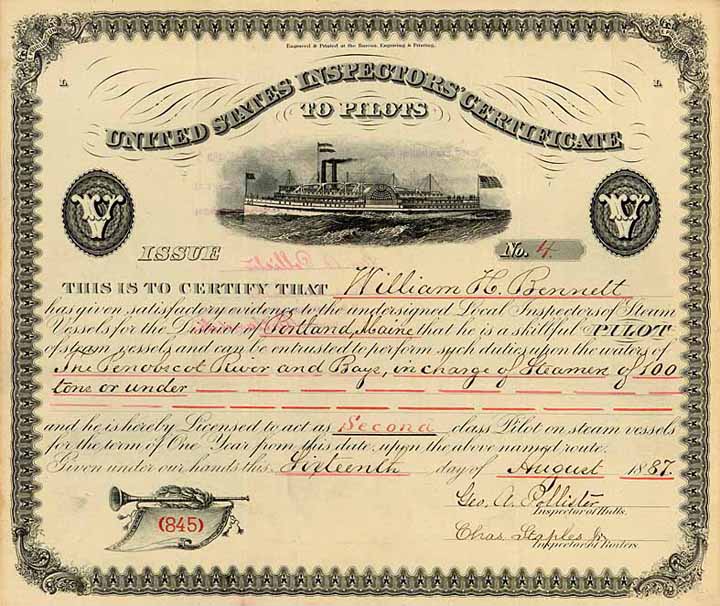 Engraved & Printed at the Bureau, Engraving & Printing.
L. L.
UNITED STATES INSPECTORS' CERTIFICATE
TO PILOTS
ISSUE No. 4.
Geo. A. Pollister
THIS IS TO CERTIFY THAT William H. Bennett
has given satisfactory evidence to the undersigned Local Inspectors of Steam
Vessels for the District of Portland, Maine that he is a skillful PILOT
of steam vessels and can be entrusted to perform such duties upon the waters of
The Penobscot River and Bays, in charge of Steamers of 100
tons or under
and he is hereby Licensed to act as Second class Pilot on steam vessels
for the term of One Year from this date, upon the above named route.
Given under our hands this Sixteenth day of August 1887.
Geo. A. Pollister
Inspector of Hulls.
(845)
Chas. Staples Jr.
Inspector of Boilers.